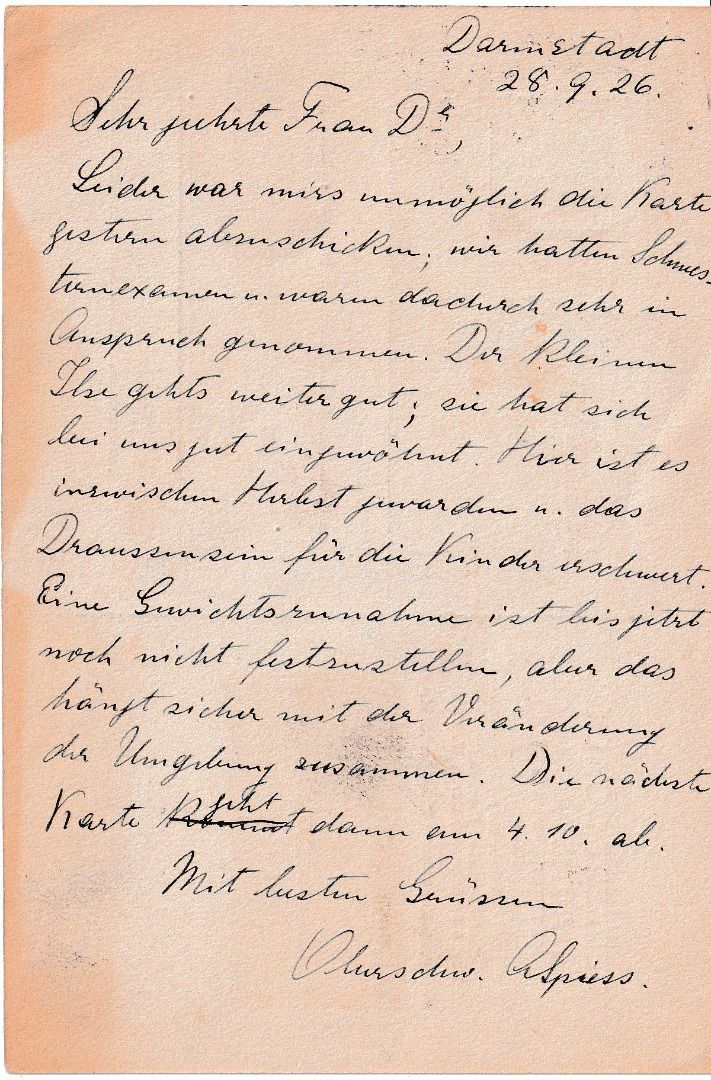 Darmstadt
28. 9. 26.
Sehr geehrte Frau Dr,
Leider war mirs unmöglich die Karte
gestern abzuschicken; wir hatten Schwes-
ternexamen u. waren dadurch sehr in
Anspruch genommen. Der kleinen
Ilse gehts weiter gut; sie hat sich
bei uns gut eingewöhnt. Hier ist es
inzwischen Herbst geworden u. das
Draussensein für die Kinder erschwert.
Eine Gewichtszunahme ist bis jetzt
noch nicht festzustellen, aber das
hängt sicher mit der Veränderung
der Umgebung zusammen. Die nächste
Karte kommt geht dann am 4. 10. ab.
Mit besten Grüssen
Oberschw. A Spiess.